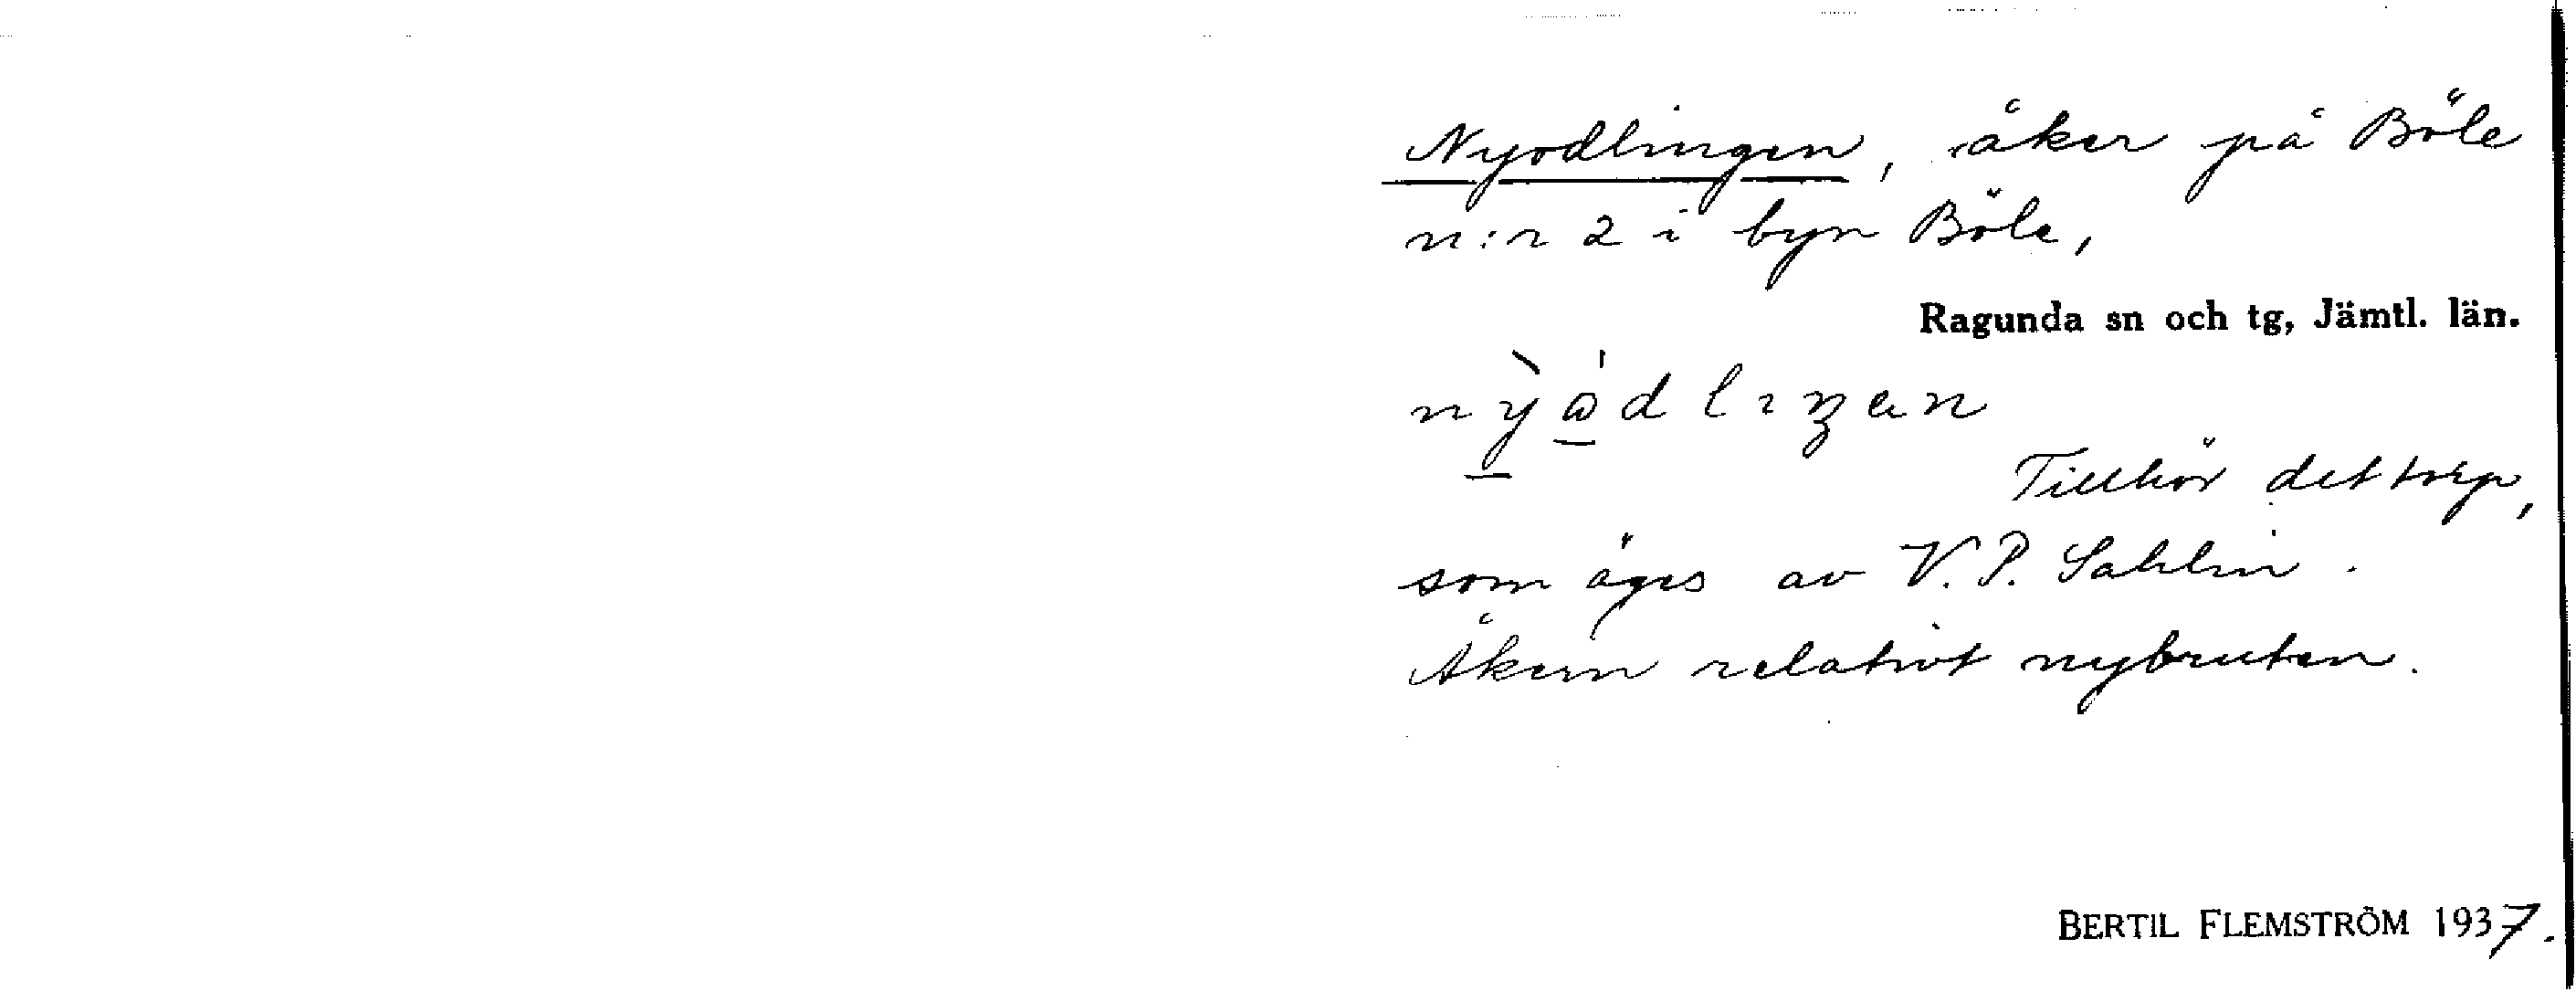 Nyodlingen, åker på Böle
n:r 2 i byn Böle,
Ragunda sn och tg, Jämtl. län.
Tillhör det torp,
som äges av V. P. Sahlin.
Åkern relativt nybruten.
BERTIL FLEMSTRÖM 1937.